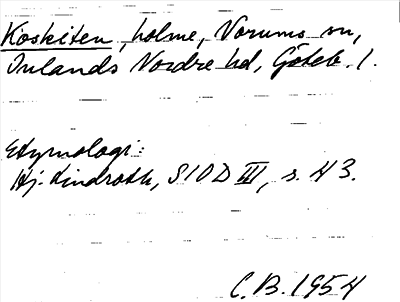 Koskiten, holme, Norums sn,
Inlands Nordre hd, Göteb. l.
Etymologi:
Hj. Lindroth, SIOD III, s. 43.
C.B. 1954